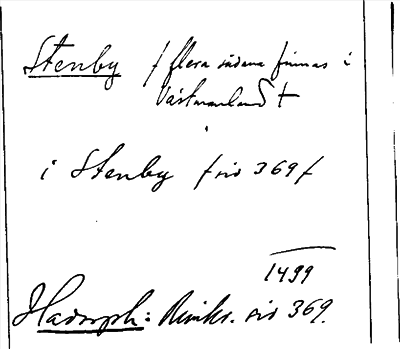 Stenby / flera sådana finnas i
Västmanland /
i Stenby / sid 369 /
1499
Hadorph: Rimkr. sid 369.